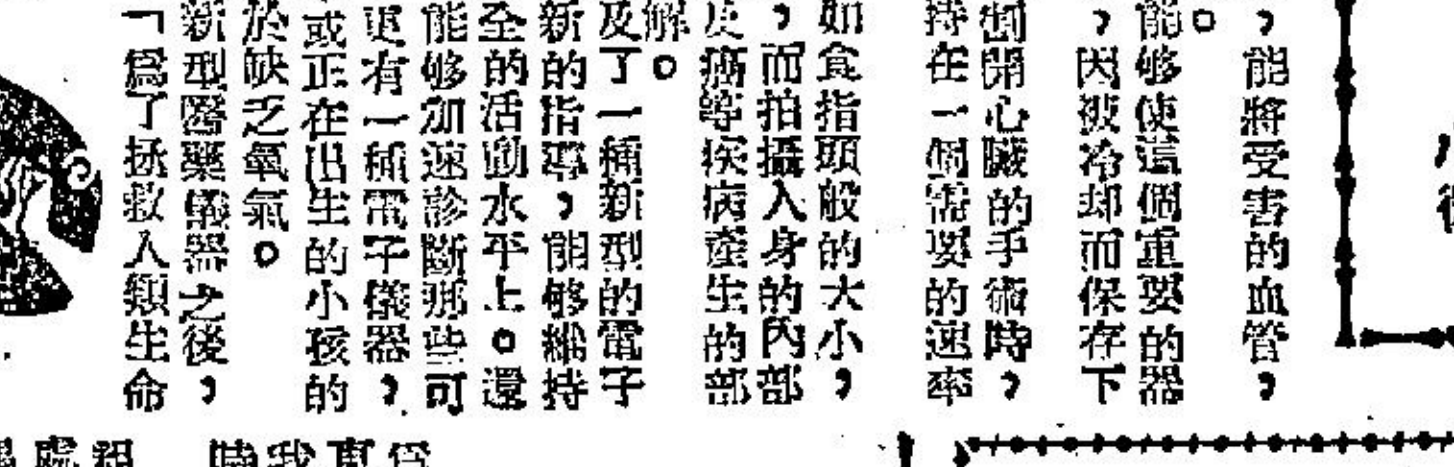 ，能將受害的血管，
。
能够使這個重要的器
，因被冷却而保存下
割開心臟的手術時，
持在一個需要的速率
如食指頭般的大小，
，而拍攝入身的內部
及癌等疾病產生的部
解。
及了一種新型的電子
新的指導，能够維持
全的活動水平上。還
能够加速診斷那些可
更有一種電子儀器，
或正在出生的小孩的
於缺乏氧氣。
新型醫藥儀器之後，
「爲了拯救人類生命